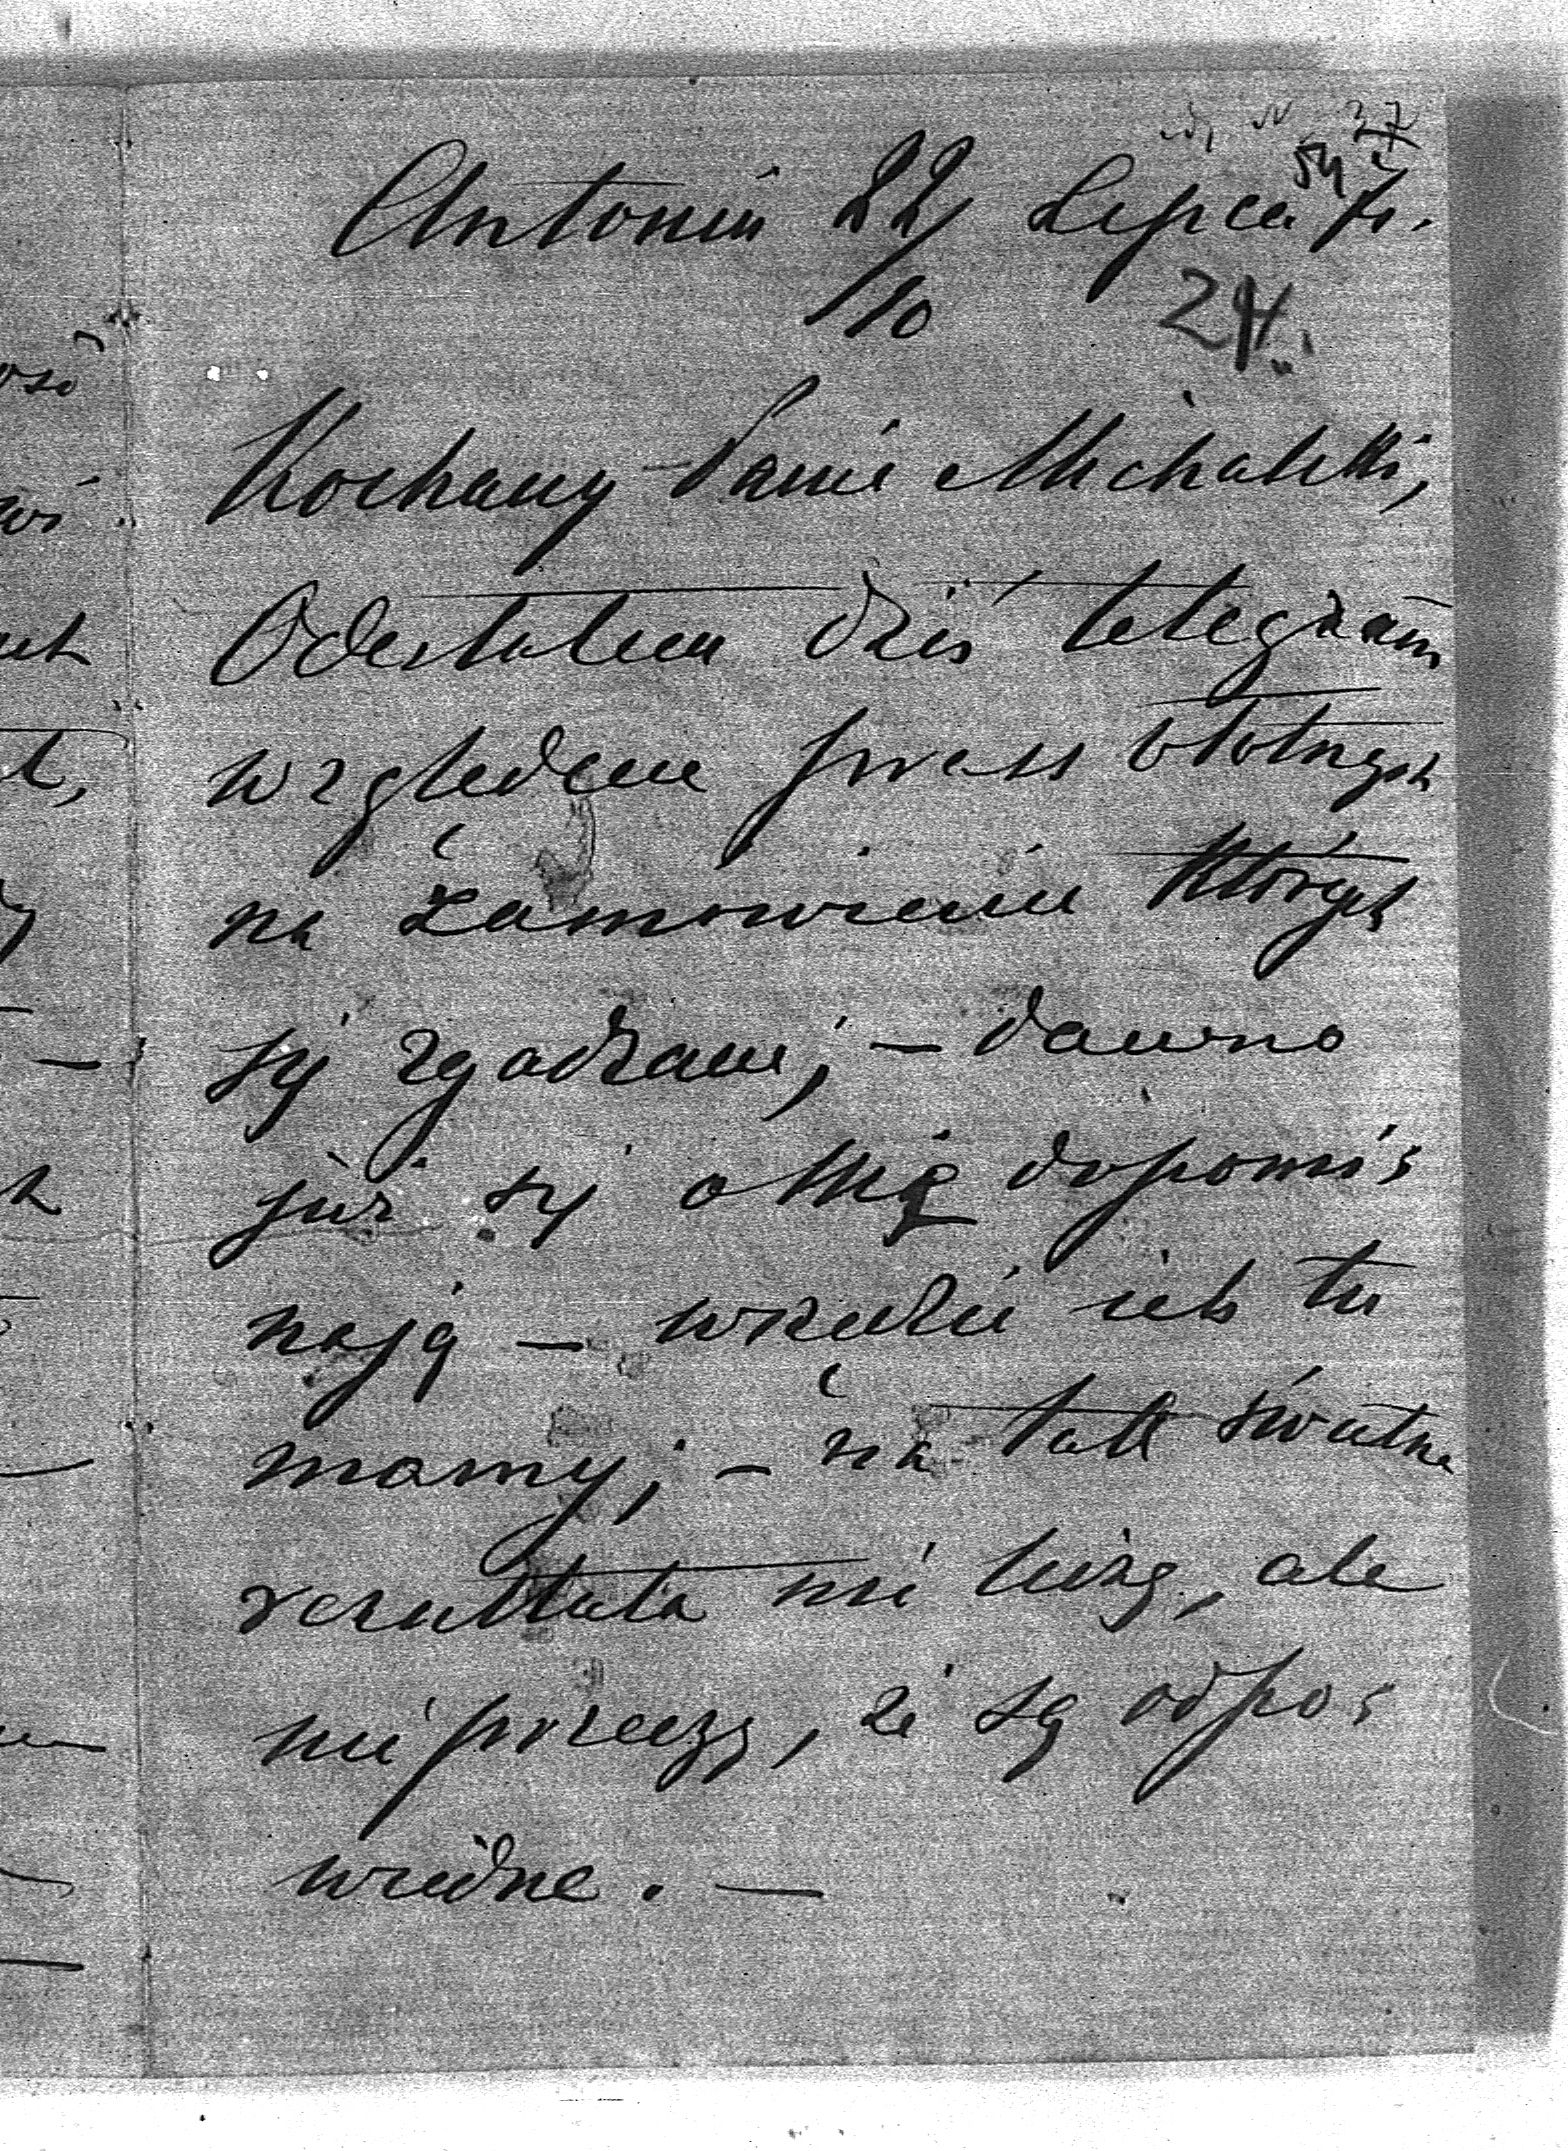 54
Antonin 22 Lipca
10
24.
Kochany Panie Michalski,
Odesłałem dziś telegram
względem press błotnych
na zamówienie których
się zgadzam; – dawno
już się o nię dopomi-
nają – wszakże ich tu
mamy; – na tak świetne
rezultata nie liczę, ale
nie przeczę, że są odpo-
wiednie. –